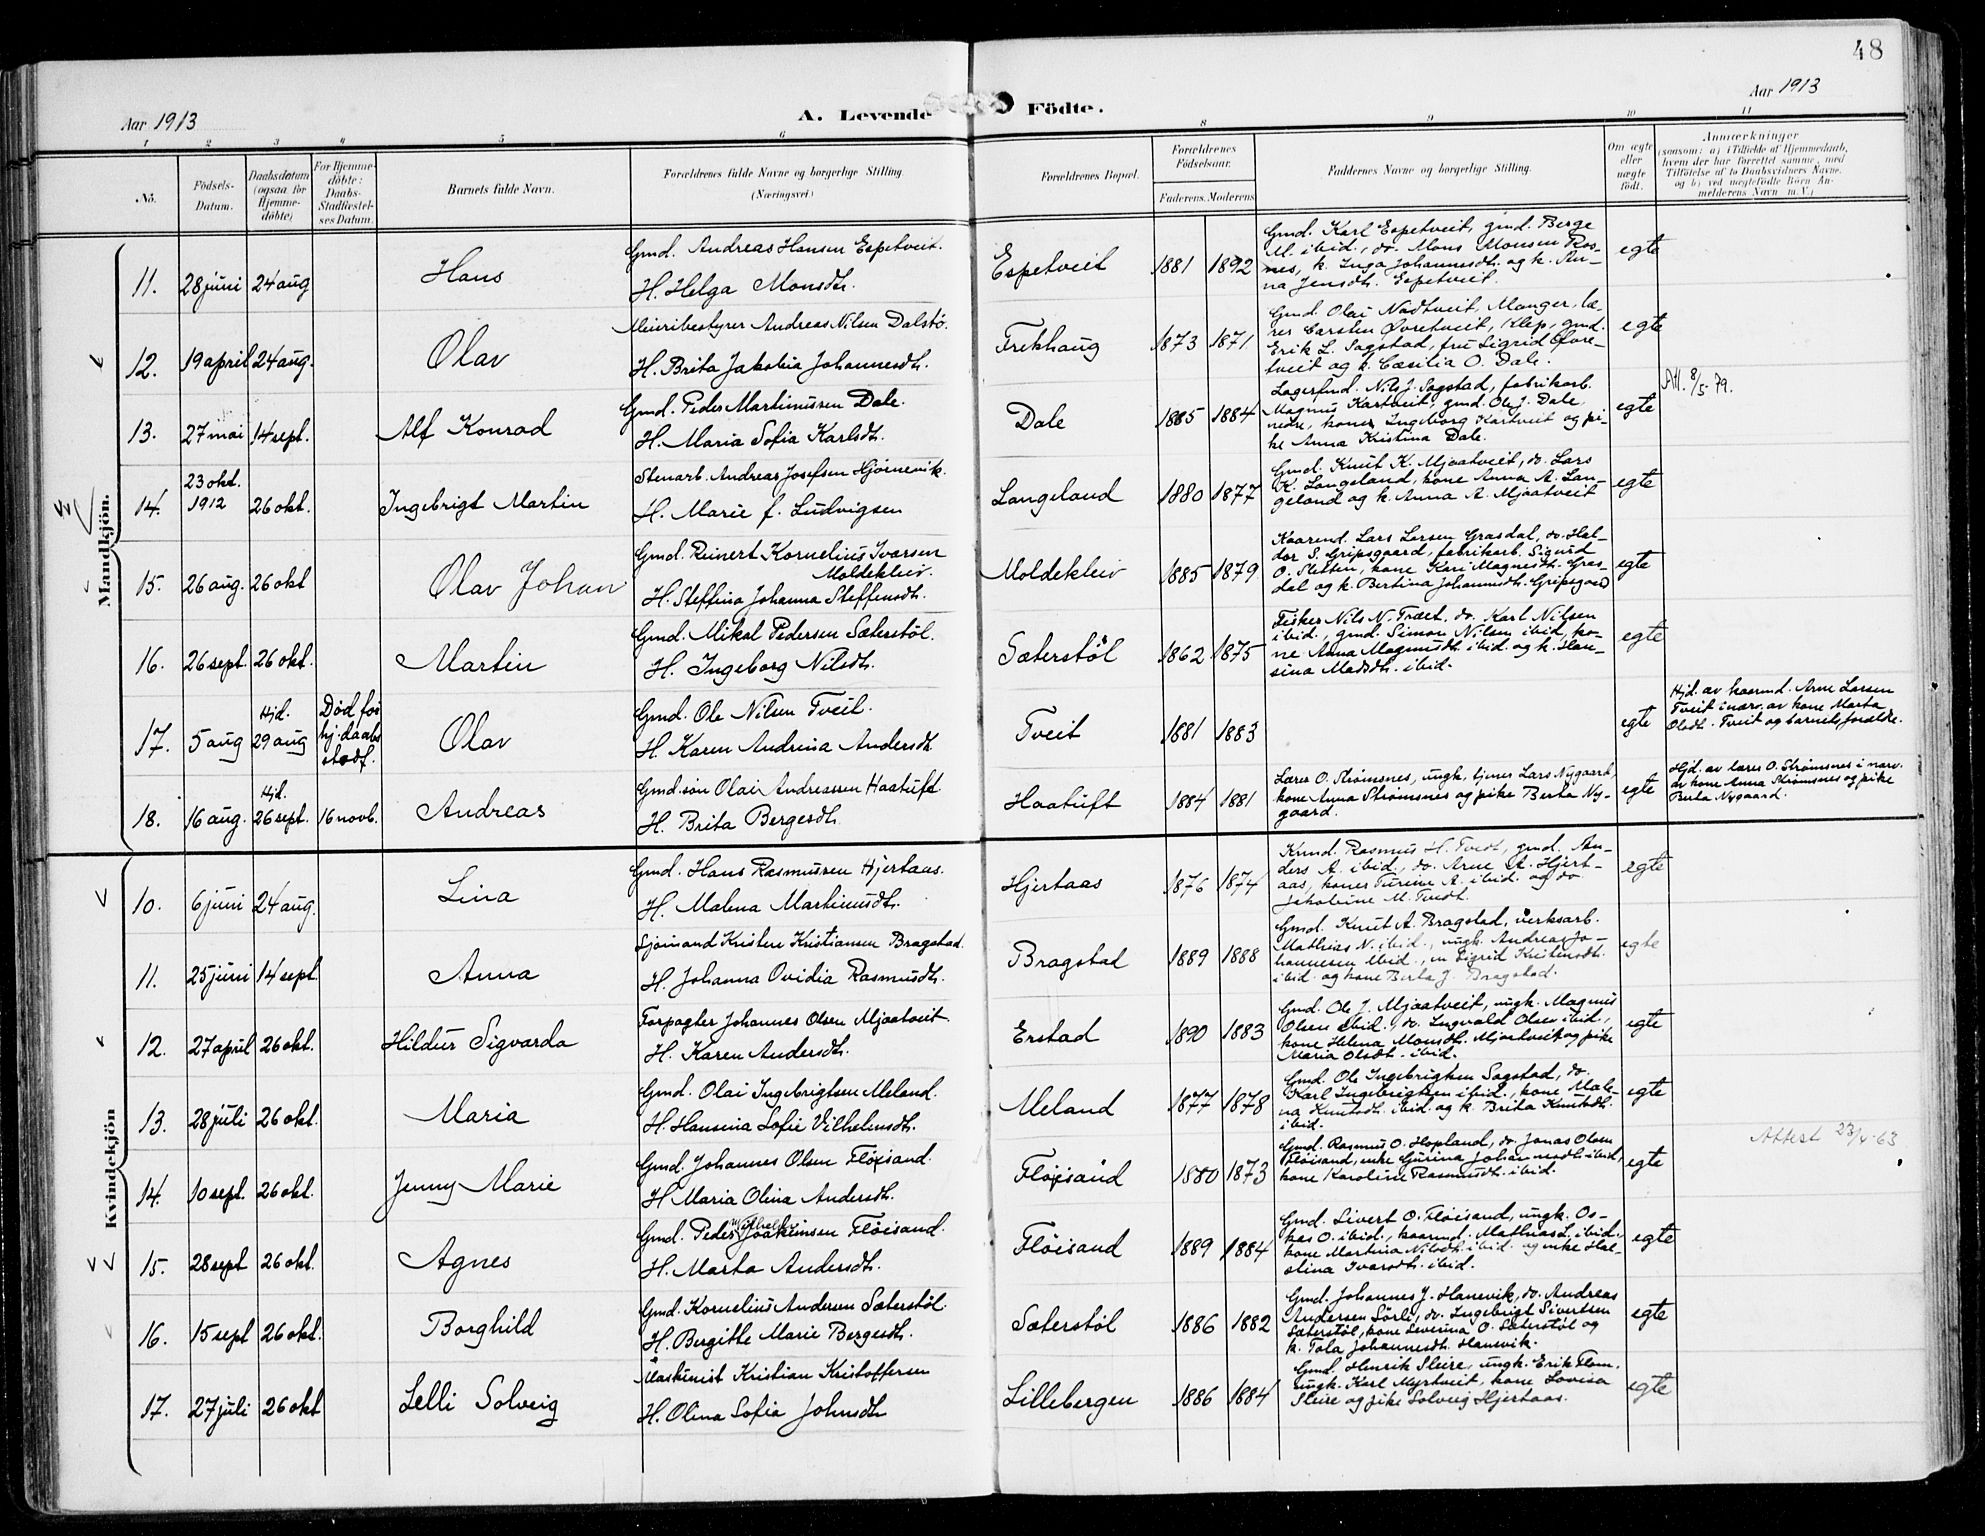 48
Aar 1913
A. Levende Födte.
Aar 1913
1 2 3 4 5 6 8 9 10 11
No.
Födsels-Datum.
Daabsdatum (ogsaa for Hjemme-döbte)
For Hjemme-döbte: Daabs-Stadfæstel-ses Datum.
Barnets fulde Navn.
Forældrenes fulde Navne og borgerlige Stilling (Næringsvei)
Forældrenes Bopæl.
Forældrenes Födselsaar.
Faderens. Moderens
Faddernes Navne og borgerlige Stilling.
Om ægte eller uægte födt.
Anmærkninger
(saasom: a) i Tilfælde af Hjemmedaab, hvem der har forrettet samme, med Tilföielse af to Daabsvidners Navne. og b) ved uægtefödte Börn An-melderens Navn m. V.)
Mandkjön.
11. 28 juni 24 aug Hans
Gmd. Andreas Hansen Espetveit.
H. Helga Monsdtr.
Espetveit 1881 1892
Gmd. Karl Espetveit, gmd. Berge
M. ibid., do. Mons Monsen Ros-
nes, k. Inga Johannesdtr. og k. An-
na Jensdtr. Espetveit.
egte
12. 19 april 24 aug. Olav
Meieribestyrer Andreas Nilsen Dalstø.
H. Brita Jakobia Johannesdtr.
Frekhaug 1873 1871
Gmd. Olai Nadtveit, Manger, læ-
rer Carsten Øvretveit, Klep, gmd.
Erik L. Sagstad, fru Sigrid Øvre-
tveit og k. Cæsilia O. Dale.
egte
13. 27 mai 14 sept. Alf Konrad
Gmd. Peder Martinussen Dale.
H. Maria Sofia Karlsdtr.
Dale 1885 1884
Lagerfmd. Nils J. Sagstad, fabrikarb.
Magnus Kartveit, gmd. Ole J. Dale
nedre, kone Ingeborg Kartveit og pi-
ke Anna Kristina Dale.
egte
Att. 8/5 79.
14. 23 okt. 1912 26 okt. Ingebrigt Martin
Stenarb. Andreas Josefsen Hjørnevik.
H. Marie f. Ludvigsen
Langeland 1880 1877
Gmd. Knut K. Mjaatveit, do. Lars
K. Langeland, kone Anna A. Lan-
geland og k. Anna A. Mjaatveit
egte
15. 26 aug. 26 okt Olav Johan
Gmd. Reinert Kornelius Ivarsen
Moldekleiv.
H. Steffina Johanna Steffensdtr.
Moldekleiv 1885 1879
Kaarmd. Lars Larsen Grasdal, do. Hal-
dor S. Gripsgaard, fabrikarb. Sigurd
O. Sletten, kone Kari Magnesdtr. Gras-
dal og k. Bertina Johannesdtr. Gripsgaard
egte
16. 26 sept. 26 okt. Martin
Gmd. Mikal Pedersen Sæterstøl.
H. Ingeborg Nilsdtr.
Sæterstøl 1862 1875
Fisker Nils N. Træet, do. Karl Nilsen
ibid., gmd. Simon Nilsen ibid, ko-
ne Anna Magnusdtr. ibid. og k. Han-
sina Madsdtr. ibid.
egte
17. 5 aug Hjd. 29 aug
Død før
hj.daabs
stadf.
Olav
Gmd. Ole Nilsen Tveit.
H. Karen Andrina Andersdtr.
Tveit 1881 1883
egte
Hjd. av kaarmd. Arne Larsen
Tveit i nærv. av kone Marta
Olsdtr. Tveit og barnets forældre.
18. 16 aug. Hjd. 26 sept. 16 novb. Andreas
Gmd.søn Olai Andreassen Haatuft
H. Brita Bergesdtr.
Haatuft 1884 1881
Lærer O. Strømsnes, ungk. tjener Lars Nygaard,
kone Anna Strømsnes og pike Berta Ny-
gaard.
egte
Hjd. av lærer O. Strømsnes i nærv.
av kone Anna Strømsnes og pike
Berta Nygaard.
Kvindekjön
10. 6 juni 24 aug. Lina
Gmd. Hans Rasmussen Hjertaas.
H. Malena Martinusdtr.
Hjertaas 1876 1874
Kmd. Rasmus H. Tvedt, gmd. An-
ders A. ibid., do. Arne A. Hjert-
aas, koner Turine A. ibid. og do.
Jakobine M. Tvedt.
egte
11. 25 juni 14 sept. Anna
Sjømand Kristen Kristiansen Bragstad.
H. Johanna Ovidia Rasmusdtr.
Bragstad 1889 1888
Gmd. Knut A. Bragstad, verksarb.
Mathias N. ibid., ungk. Andreas Jo-
hannesen ibid., Sigrid Kristensdtr.
ibid. og kone Berta J. Bragstad.
egte
12. 27 april 26 okt. Hildur Sigvarda
Forpagter Johannes Olsen Mjaatveit.
H. Karen Andersdtr.
Erstad 1890 1883
Gmd. Ole J. Mjaatveit, ungk. Magnus
Olsen ibid., do. Ingvald Olsen ibid.,
kone Helena Monsdtr. Mjaatveit og pike
Maria Olsdtr. ibid.
egte
13. 28 juli 26 okt. Maria
Gmd. Olai Ingebrigtsen Meland.
H. Hansina Sofie Vilhelmsdtr.
Meland 1877 1878
Gmd. Ole Ingebrigtsen Sagstad, do.
Karl Ingebrigtsen ibid., kone Male-
na Knutsdtr. ibid. og k. Brita Knutsdtr.
ibid.
egte
14. 10 sept. 26 okt. Jenny Marie
Gmd. Johannes Olsen Fløisand.
H. Maria Olina Andersdtr.
Fløisand 1880 1873
Gmd. Rasmus O. Hopland, do. Jonas Olsen
Fløisand, enke Gurina Johannesdtr. ibid,
kone Karoline Rasmusdtr. ibid.
egte
Attest 23/4-63
15. 28 sept 26 okt. Agnes
Gmd. Peder Joakimsen Fløisand.
H. Marta Andersdtr.
Fløisand 1889 1884
Gmd. Sivert O. Fløisand, ungk. Os-
kar O. ibid., kaarmd. Mathias L. ibid.
kone Martina Nilsdtr. ibid. og enke Hal-
olina Ivarsdtr. ibid.
egte
16. 15 sept 26 okt. Borghild
Gmd. Kornelius Andersen Sæterstøl.
H. Bergitte Marie Bergesdtr.
Sæterstøl 1886 1882
Gmd. Johannes J. Hanevik, do. Andreas
Andersen Sörli, do. Ingebrigt Sivertsen
Sæterstøl, kone Severina O. Sæterstøl og
k. Tola Johannesdtr. Hanevik.
egte
17. 27 juli 26 okt Lelli Solveig
Maskinist Kristian Kristoffersen
H. Olina Sofia Johnsdtr
Lillebergen 1886 1884
Gmd. Henrik Sleire, ungk. Erik Flom,
ungk. Karl Myrtveit, kone Lovisa
Sleire og pike Solveig Hjertaas.
egte